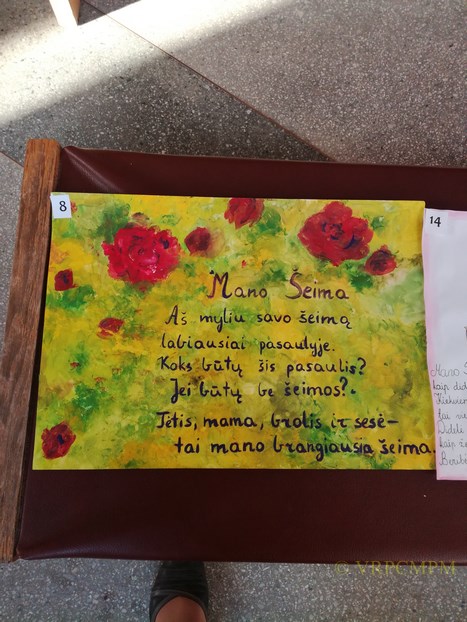 8
Mano Šeima
Aš myliu savo šeimą
labiausiai pasaulyje.
Koks būtų šis pasaulis?
Jei būtų be šeimos?
Tėtis, mama, brolis ir sesė-
tai mano brangiausia šeima.
14
Mano
kaip did
Didelė
kaip
© VRPCMPM